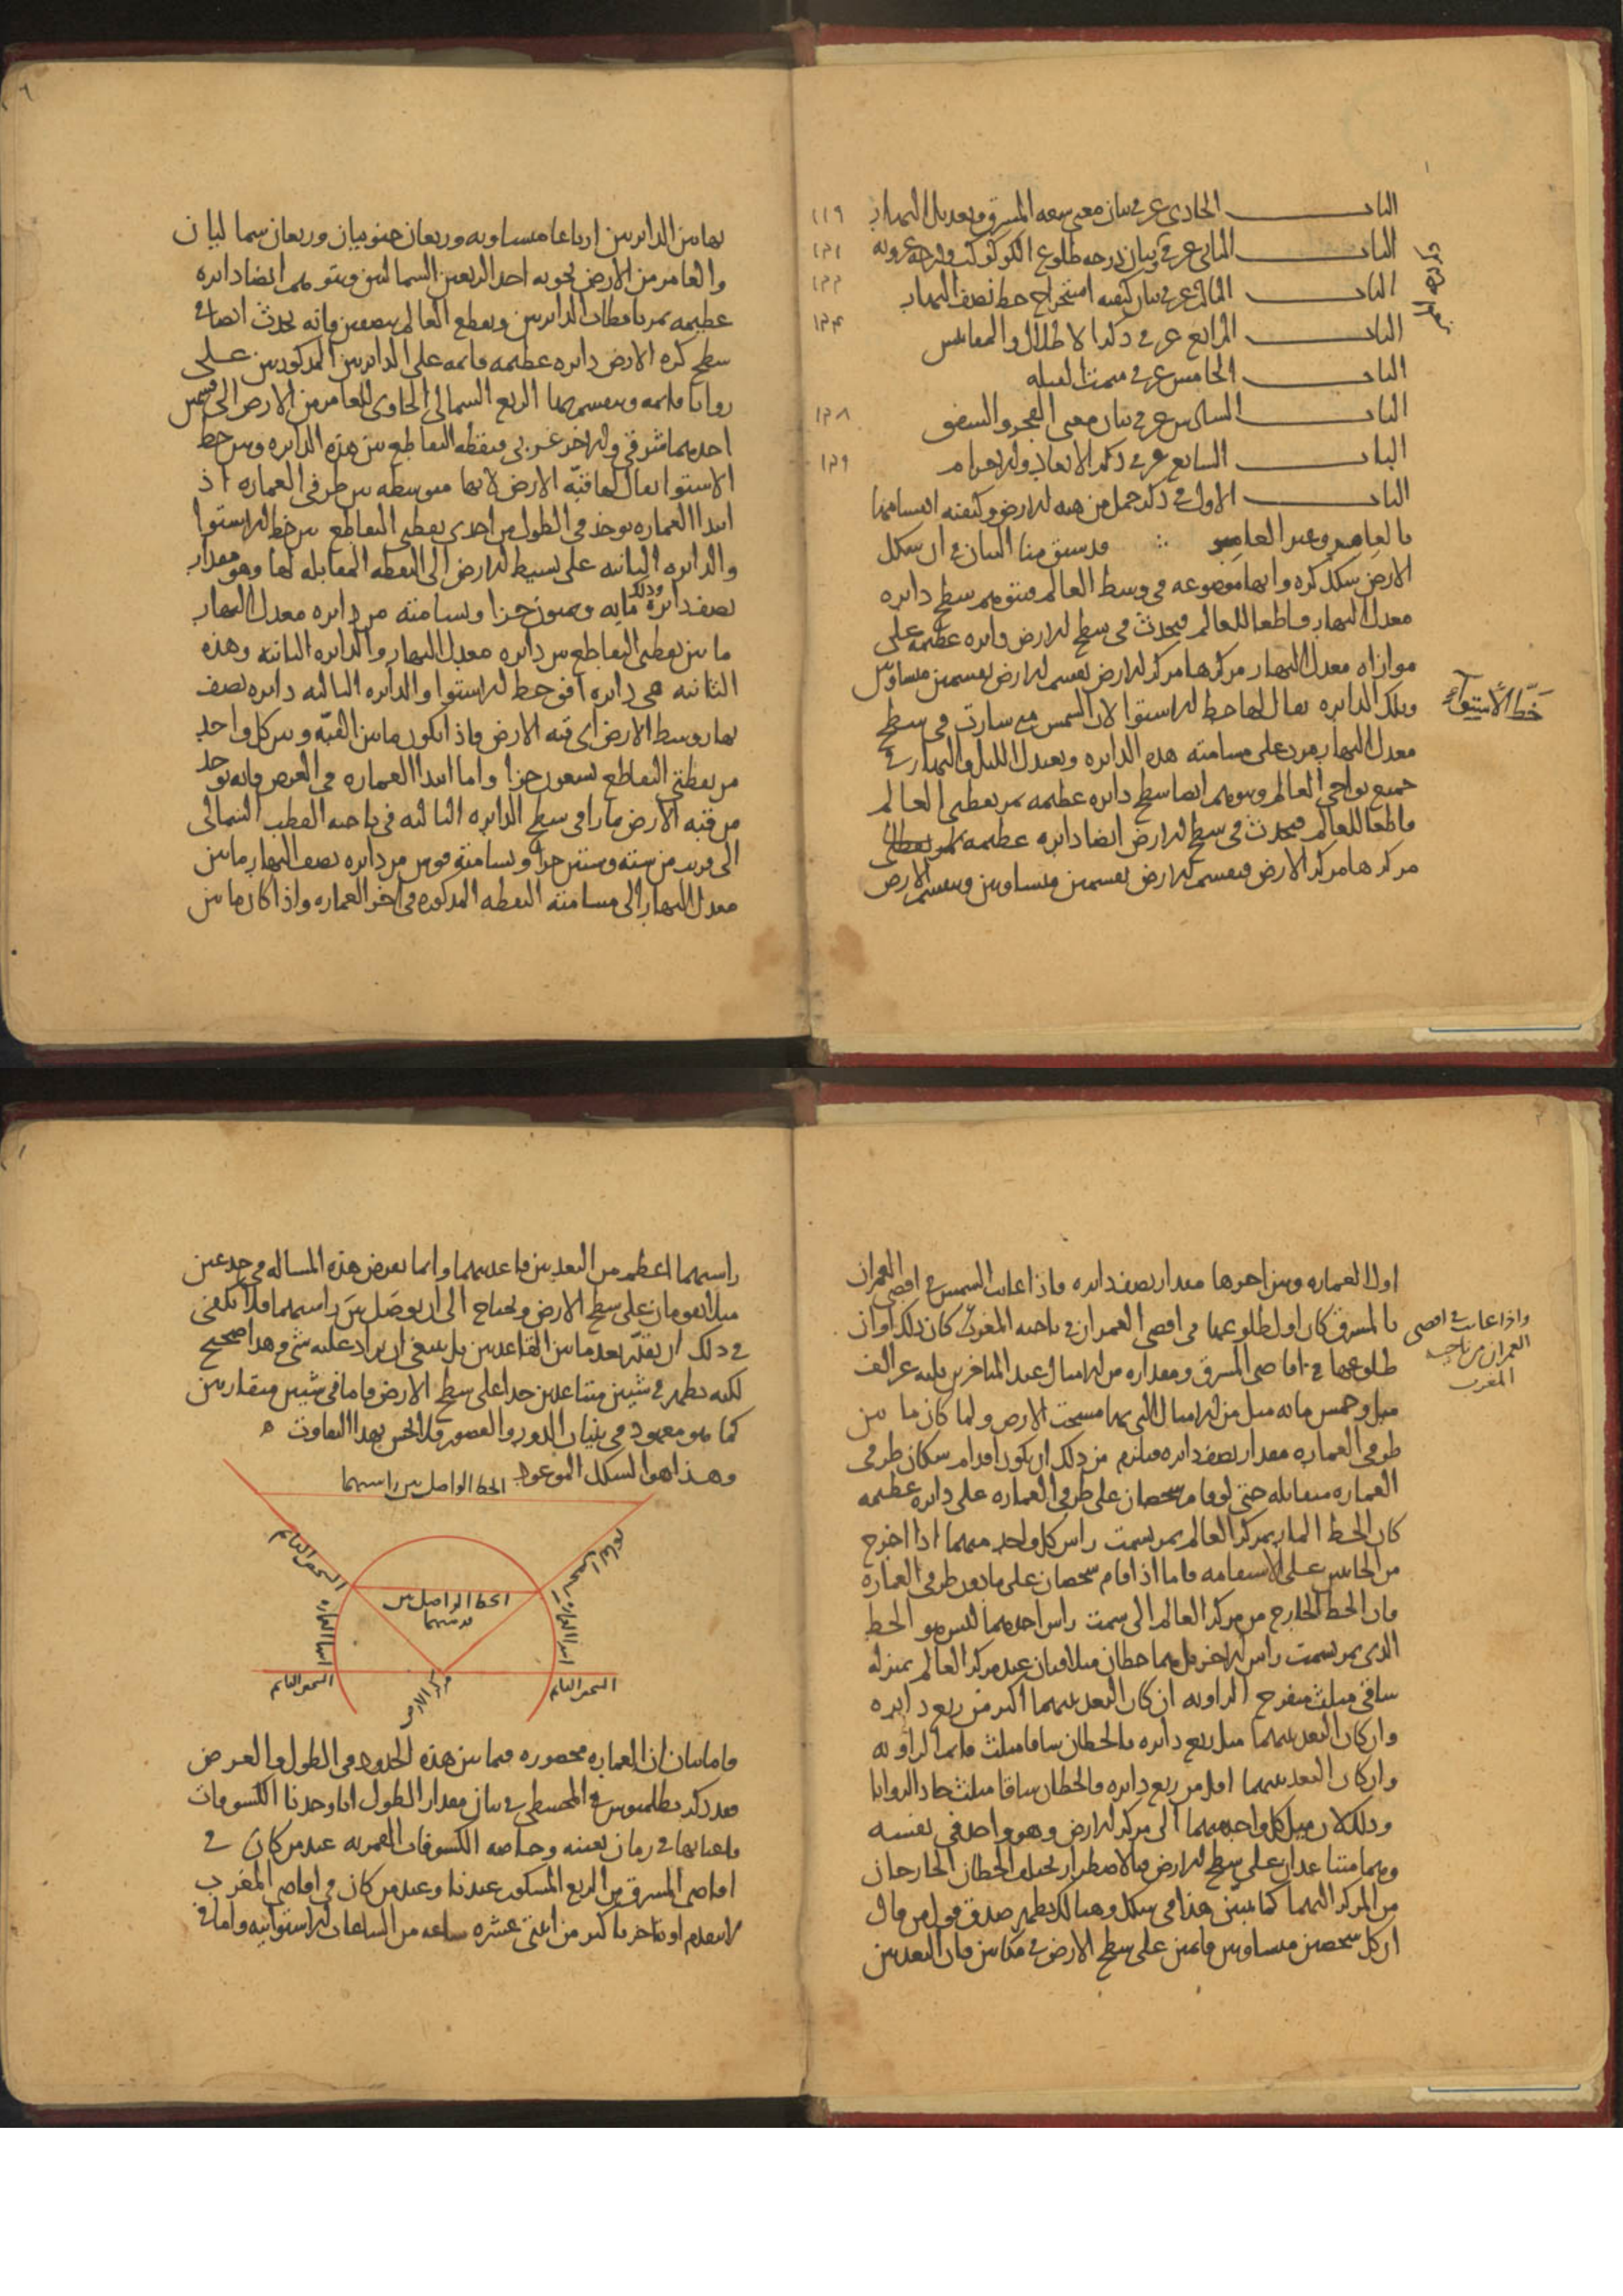 الباب الحادي عشر في بيان معنى سعه المشرق وتعديل النهار ١١٩
الباب الثاني عشر في بيان درجه طلوع الكوكب ودرجه غروبه ١٢١
الباب الثالث عشر في بيان كيفيه استخراج خط نصف النهار ١٢٢
الباب الرابع عشر في ذكر الاظلال والمقاييس ١٢٤
الباب الخامس عشر في سمت القبله
الباب السادس عشر في بيان معنى الفجر والشفق ١٢٨
الباب السابع عشر في ذكر الابعاد والاجرام ١٢٩
الباب الاول في ذكر جمل من هيه الارض وكيفيه انقسامها
بالعامر وغير العامر ∴ قد سبق منا البيان في ان شكل
الارض شكل كره وانها موضوعه في وسط العالم فنتوهم سطح دايره
معدل النهار قاطعا للعالم فيحدث في سطح الارض دايره عظيمه على
موازاه معدل النهار مركزها مركز الارض تقسم الارض بقسمين متساويين
وتلك الدايره يقال لها خط الاستوا لان الشمس متى سارت في سطح
خط الاستواء
معدل النهار مرت على مسامته هذه الدايره ويعتدل الليل والنهار في
جميع نواحي العالم ونتوهم ايضا سطح دايره عظيمه تمر بقطبي العالم
قاطعا للعالم فيحدث في سطح الارض ايضا دايره عظيمه
مركزها مركز الارض فتقسم الارض بقسمين متساويين وتنقسم الارض
بهاتين الدايرتين ارباعا متساويه وربعان جنوبيان وربعان شماليان
والعامر من الارض يحويه احد الربعين الشماليين ونتوهم ايضا دايره
عظيمه تمر باقطاب الدايرتين وتقطع العالم بنصفين فانه يحدث ايضا في
سطح كره الارض دايره عظيمه قايمه على الدايرتين المذكورتين على
زوايا قايمه وينقسم بها الربع الشمالي الحاوي للعامر من الارض الى قسمين
احدهما شرقي والاخر غربي ونقطه التقاطع بين هذه الدايره وبين خط
الاستوا يقال لها قبّه الارض لانها متوسطه بين طرفي العماره اذ
ابتدا العماره يوخذ في الطول من احدى نقطتي التقاطع بين خط الاستوا
والدايره الثانيه على بسيط الارض الى النقطه المقابله لها وهو مقدار
نصف دايره وذلك مايه وثمنون جزا ويسامته من دايره معدل النهار
ما بين نقطتي التقاطع بين دايره معدل النهار والدايره الثانيه وهذه
الثانيه هي دايره افق خط الاستوا والدايره الثالثه دايره نصف
نهار وسط الارض اي قبه الارض فاذا يكون ما بين القبّه وبين كل واحد
من نقطتي التقاطع تسعون جزا واما ابتدا العماره في العرض فانه يوخذ
من قبه الارض مارا في سطح الدايره الثالثه في ناحيه القطب الشمالي
الى قريب من سته وستين جزا ويسامته قوس من دايره نصف النهار ما بين
معدل النهار الى مسامته النقطه المذكوره في اخر العماره واذا كان ما بين
اول العماره وبين اخرها مقدار نصف دايره فاذا غابت الشمس في اقصى العمران
بالمشرق كان اول طلوعها في اقصى العمران في ناحيه المغرب كان ذلك اوان
واذا غابت في اقصى
العمران من ناحيه
المغرب
طلوعها في اقاصي المشرق ومقداره من الاميال عند المتاخرين ثلثه عشر الف
ميل وخمس مايه ميل من الاميال التي بها مسحت الارض ولما كان ما بين
طرفي العماره مقدار نصف دايره فيلزم من ذلك ان يكون اقدام سكان طرفي
العماره متقابله حتى لو قام شخصان على طرفي العماره على دايره عظيمه
كان الخط المار بمركز العالم يمر بسمت راس كل واحد منهما اذا اخرج
من الجانبين على الاستقامه فاما اذا قام شخصان على ما دون طرفي العماره
فان الخط الخارج من مركز العالم الى سمت راس احدهما ليس هو الخط
الذي يمر بسمت راس الاخر بل هما خطان متلاقيان عند مركز العالم بمنزله
ساقي مثلث منفرج الزاويه ان كان البعد بينهما اكثر من ربع دايره
وان كان البعد بينهما مثل ربع دايره فالخطان ساقا مثلث قايم الزاويه
وان كان البعد بينهما اقل من ربع دايره فالخطان ساقا مثلث حاد الزوايا
وذلك لان ميل كل واحد منهما الى مركز الارض وهو واحد في نفسه
وهما متباعدان على سطح الارض فبالاضطرار يختلف الخطان الخارجان
من المركز اليهما كما نبيّن هذا في شكل وهنالك يظهر صدق قول من قال
ان كل شخصين متساويين قايمين على سطح الارض في مكانين فان البعد بين
راسيهما اعظم من البعد بين قاعدتيهما وانما تعرض هذه المساله في جذعين
مثلا يقومان على سطح الارض ويحتاج الى ان يوصل بين راسيهما فلا يكفي
في ذلك ان يقدّر بعد ما بين القاعدتين بل ينبغي ان يزاد عليه شي وهذا صحيح
لكنه يظهر في شيين متباعدين جدا على سطح الارض فاما في شيين متقاربين
كما هو معهود في بنيان الدور والقصور فلا يحس بهذا التفاوت ه
وهذا هو الشكل الموعود
الخط الواصل بين راسيهما
الشخص القايم
الشخص القايم
الخط الواصل بين
قدميهما
ابتدا العماره
ابتدا العماره
الشخص القايم
الشخص القايم
مركز الارض
واما بيان ان العماره محصوره فيما بين هذه الحدود في الطول والعرض
فقد ذكر بطلميوس في المجسطي في بيان مقدار الطول انا وجدنا الكسوفات
باعيانها في زمان بعينه وخاصه الكسوفات القمريه عند من كان في
اقاصي المشرق من الربع المسكون عندنا وعند من كان في اقاصي المغرب
لا يتقدم او يتاخر باكثر من اثنتي عشره ساعه من الساعات الاستوائيه واما في